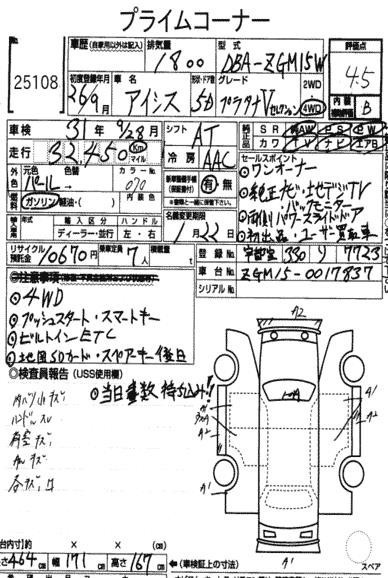 プライムコーナー
25108
車歴 (自家用以外は記入) 排気量 型式 評価点
1800 DBA-ZGM15W 4.5
初度登録年月 車名 形状・ドア数 グレード 2WD
26/9 アイシス 5D プラタナ Vセレクション 4WD
内装 B
車検 31年 9/28月 シフト AT
純正品 SR AW PS PW
カワ TV ナビ エアB
走行 52,450 Km マイル 冷房 AAC
セールスポイント
①ワンオーナー
外元色 色替 カラーNo.
パール 070
ガソリン 軽油・( ) 内装色
新車整備手帳 (保証書付) 有・無
◎純正ナビ・地デジTV
・バックモニター
◎両側パワースライドドア
◎初出品・ユーザー買取車
輸入車用 年式 輸入区分 ハンドル
ディーラー・並行 左・右
名義変更期限
月 22日
リサイクル預託金 10670円 乗車定員 7人 積載量
登録No. 宇都宮 330 り 7723
車台No. ZGM15-0017837
シリアルNo.
◎注意事項
◎4WD
◎プッシュスタート・スマートキー
◎ビルトインETC
◎地図SDカード・スペアキー後日
◎検査員報告 (USS使用欄)
◎当日書類持ち込み!!
内バリ小キズ
ハンドルスレ
A2
A1
A2
A1
A1
スペア
台内寸) 約 × × (cm)
さ 464 cm 幅 171 cm 高さ 167 cm ←(車検証上の寸法)